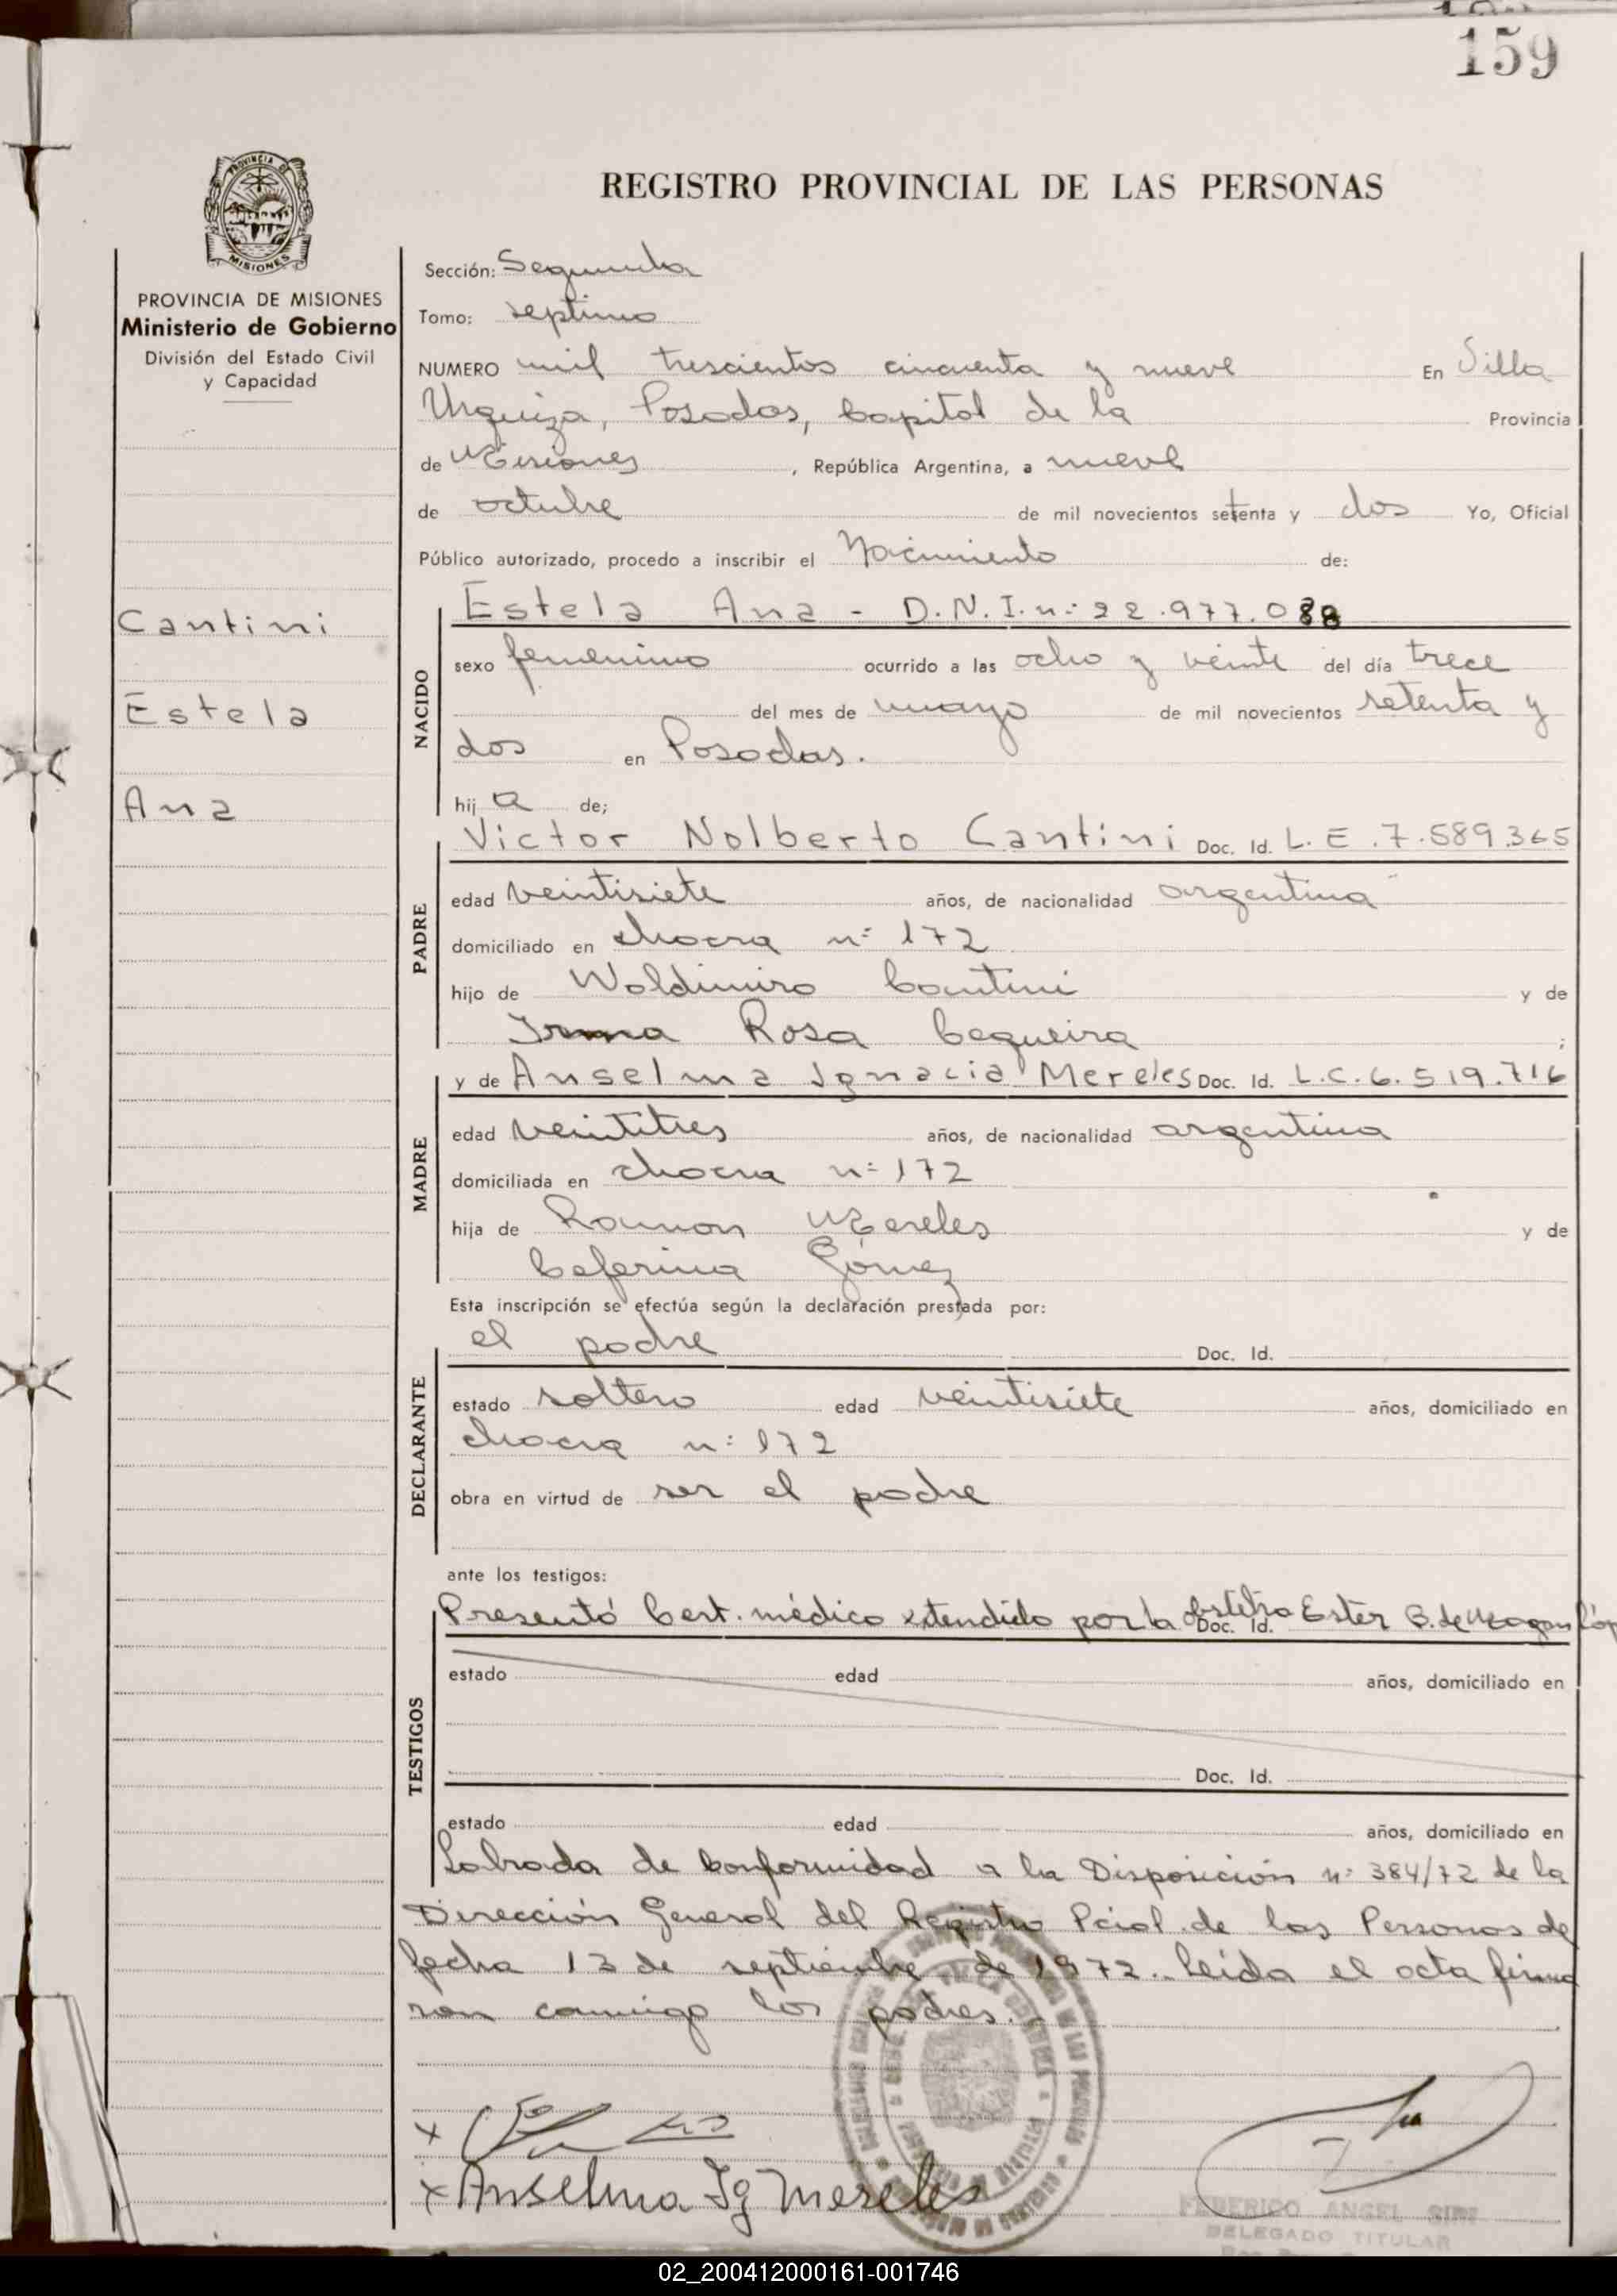 159
REGISTRO PROVINCIAL DE LAS PERSONAS
PROVINCIA DE
MISIONES
PROVINCIA DE MISIONES
Ministerio de Gobierno
División del Estado Civil
y Capacidad
Cantini
Estela
Ana
Sección: Segunda
Tomo: septimo
NUMERO mil trescientos cincuenta y nueve En Villa
Urquiza, Posadas, Capital de la Provincia
de Misiones, República Argentina, a nueve
de octubre de mil novecientos setenta y dos Yo, Oficial
Público autorizado, procedo a inscribir el Nacimiento de:
NACIDO
Estela Ana - D.N.I.n.: 22.977.088
sexo femenino ocurrido a las ocho y veinte del día trece
del mes de mayo de mil novecientos setenta y
dos en Posadas.
hij a de;
PADRE
Victor Nolberto Cantini Doc. Id. L.E.7.589.365
edad veintisiete años, de nacionalidad argentina
domiciliado en chacra n: 172
hijo de Waldimiro Cantini y de
Irma Rosa Cequeira ;
MADRE
y de Anselma Ignacia Mereles Doc. Id. L.C.6.519.716
edad veintitres años, de nacionalidad argentina
domiciliada en chacra n: 172
hija de Ramon Mereles y de
Ceferina Gómez
Esta inscripción se efectúa según la declaración prestada por:
DECLARANTE
el padre Doc. Id.
estado soltero edad veintisiete años, domiciliado en
chacra n: 172
obra en virtud de ser el padre
ante los testigos:
TESTIGOS
Presentó Cert. médico extendido por la obstetra Ester G. de
Doc. Id.
estado edad años, domiciliado en
Doc. Id.
estado edad años, domiciliado en
Labrada de Conformidad a la Disposición n: 384/72 de la
Dirección General del Registro Pcial. de las Personas de
fecha 13 de septiembre de 1972.. Leida el acta firma
ron conmigo los padres.
x
x Anselma Ig Mereles
FEDERICO ANGEL
DELEGADO TITULAR
02_200412000161-001746